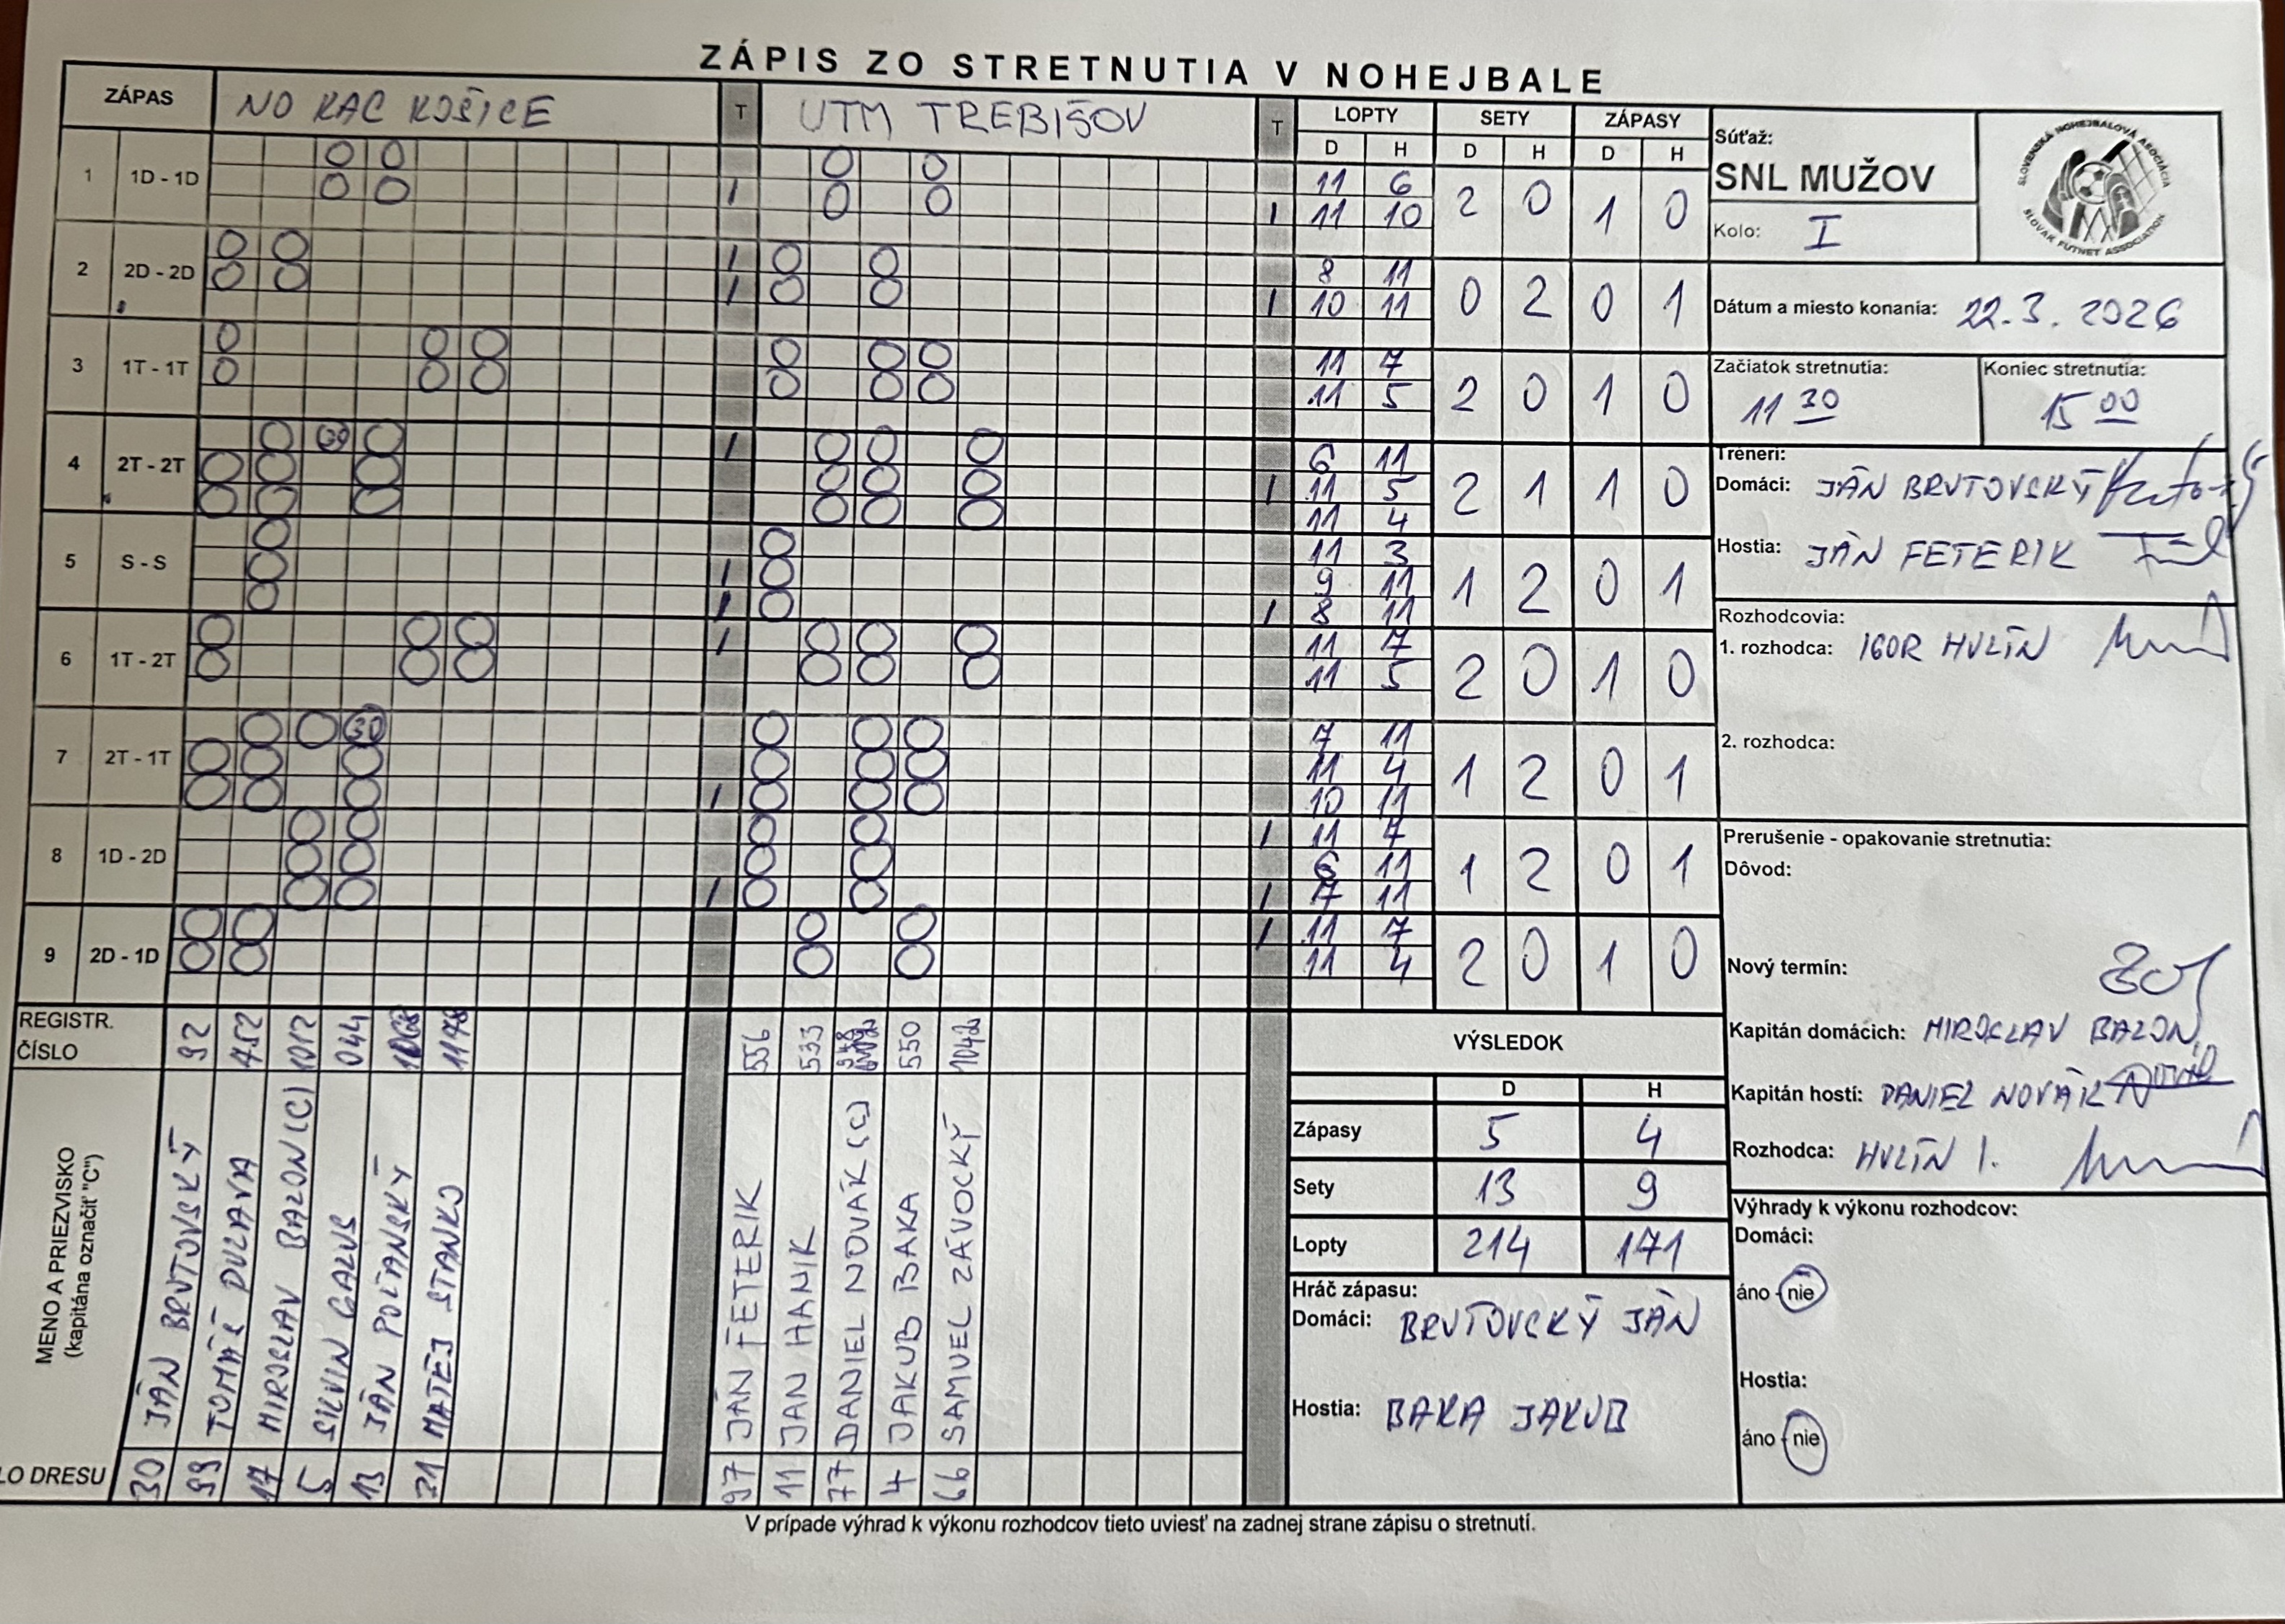 ZÁPIS ZO STRETNUTIA V NOHEJBALE
ZÁPAS NO KAC KOŠICE T UTM TREBIŠOV T LOPTY SETY ZÁPASY
D H D H D H
1 1D - 1D 11 6 2 0 1 0
11 10
2 2D - 2D 8 11 0 2 0 1
10 11
3 1T - 1T 11 7 2 0 1 0
11 5
4 2T - 2T 30 6 11 2 1 1 0
11 5
11 4
5 S - S 11 3 1 2 0 1
9 11
8 11
6 1T - 2T 11 7 2 0 1 0
11 5
7 2T - 1T 30 7 11 1 2 0 1
11 4
10 11
8 1D - 2D 11 7 1 2 0 1
6 11
7 11
9 2D - 1D 11 7 2 0 1 0
11 4
REGISTR. ČÍSLO 92 452 1012 044 1176 556 533 550 1042
MENO A PRIEZVISKO
(kapitána označiť "C")
JÁN BRUTOVSKÝ
TOMÁŠ DULAVA
MIROSLAV BAZON (C)
SILVIN GALUS
JÁN POĽANSKÝ
MATEJ STANKO
JÁN FETERIK
JÁN HANIK
DANIEL NOVÁK (C)
JAKUB BAKA
SAMUEL ZÁVOCKÝ
LO DRESU 30 99 17 5 13 21 97 11 77 4 66
VÝSLEDOK
D H
Zápasy 5 4
Sety 13 9
Lopty 214 171
Hráč zápasu:
Domáci: BRUTOVSKÝ JÁN
Hostia: BAKA JAKUB
Súťaž:
SNL MUŽOV
Kolo: I
SLOVENSKÁ NOHEJBALOVÁ ASOCIÁCIA
SLOVAK FUTNET ASSOCIATION
Dátum a miesto konania: 22.3. 2026
Začiatok stretnutia: Koniec stretnutia:
11 30 15 00
Tréneri:
Domáci: JÁN BRUTOVSKÝ
Hostia: JÁN FETERIK
Rozhodcovia:
1. rozhodca: IGOR HULÍN
2. rozhodca:
Prerušenie - opakovanie stretnutia:
Dôvod:
Nový termín:
Kapitán domácich: MIROSLAV BAZON
Kapitán hostí: DANIEL NOVÁK
Rozhodca: HULÍN I.
Výhrady k výkonu rozhodcov:
Domáci:
áno - nie
Hostia:
áno - nie
V prípade výhrad k výkonu rozhodcov tieto uviesť na zadnej strane zápisu o stretnutí.